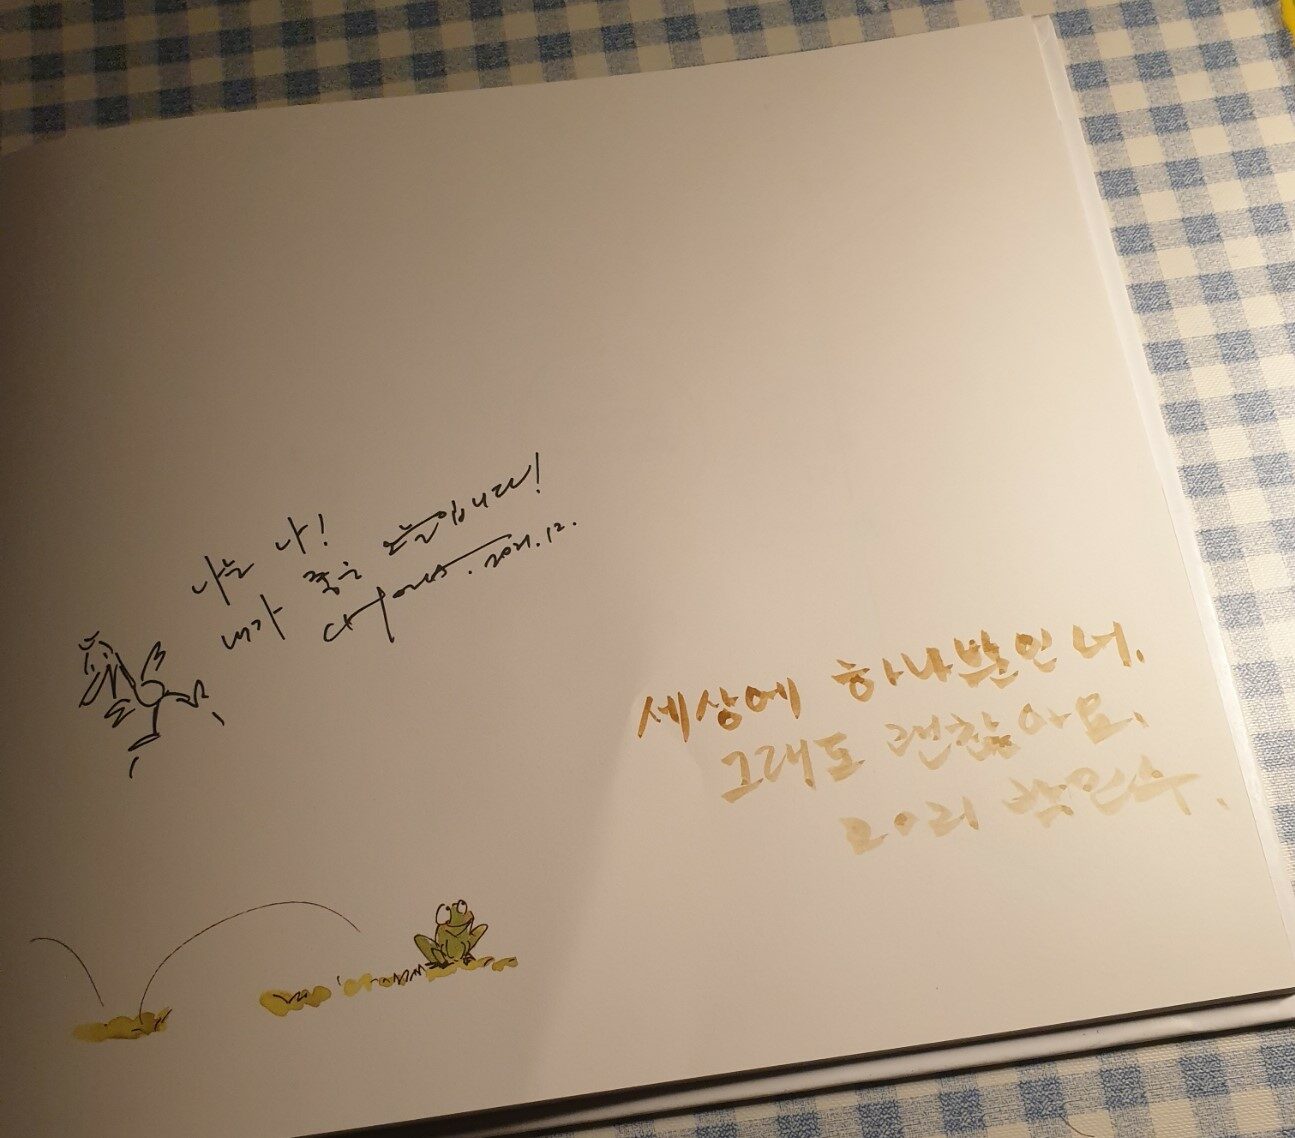 나는 나!
내가 좋은 오늘입니다!
2021.12.
세상에 하나뿐인 너.
그래도 괜찮아요.
2021